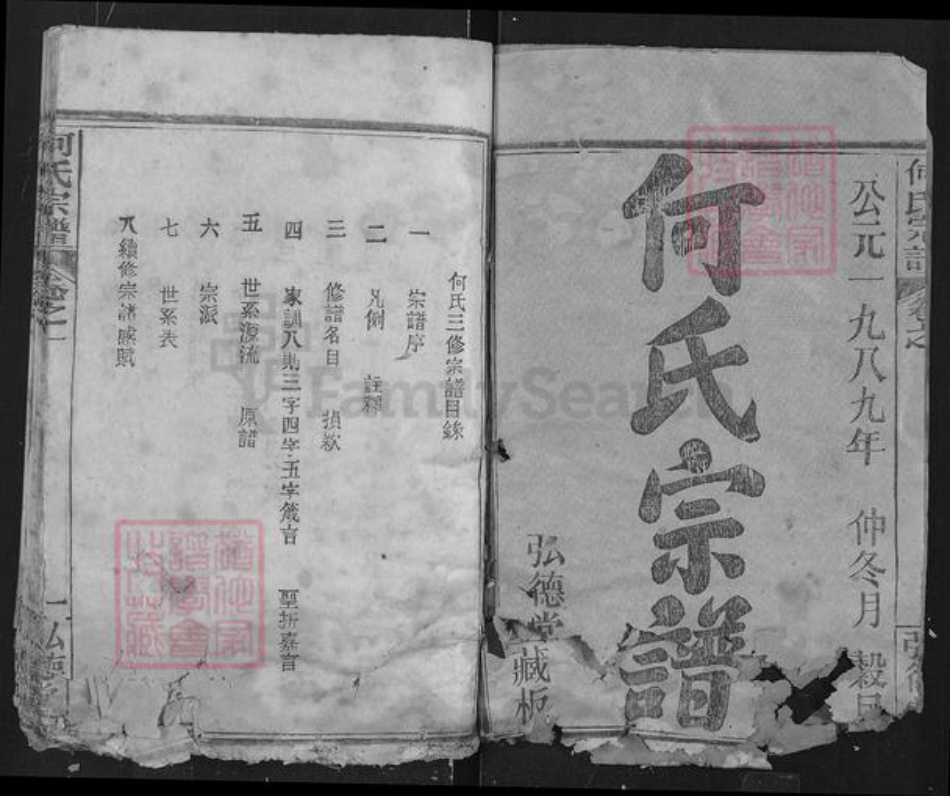 何氏宗譜
公元一九八九年 仲冬月 穀旦
何氏宗譜
弘德堂藏板
何氏三修宗譜目錄
一 宗譜序
二 凡例 註釋
三 修譜名目 損款
四 家訓八則三字四字五字箴言 聖折嘉言
五 世系源流 原譜
六 宗派
七 世系表
八 續修宗譜感賦
何氏宗譜 卷之一
一 弘德堂
FamilySearch